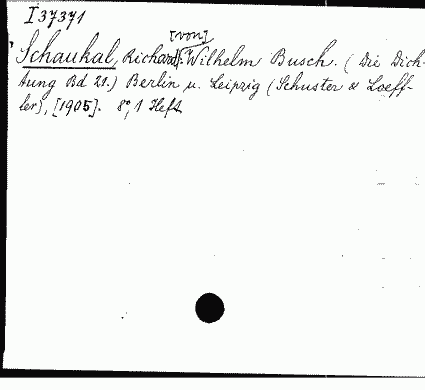 I 37371
[von]
Schaukal, Richard: Wilhelm Busch. (Die Dich-
tung Bd 21.) Berlin u. Leipzig (Schuster & Loeff-
ler), [1905]. 8°, 1 Heft.